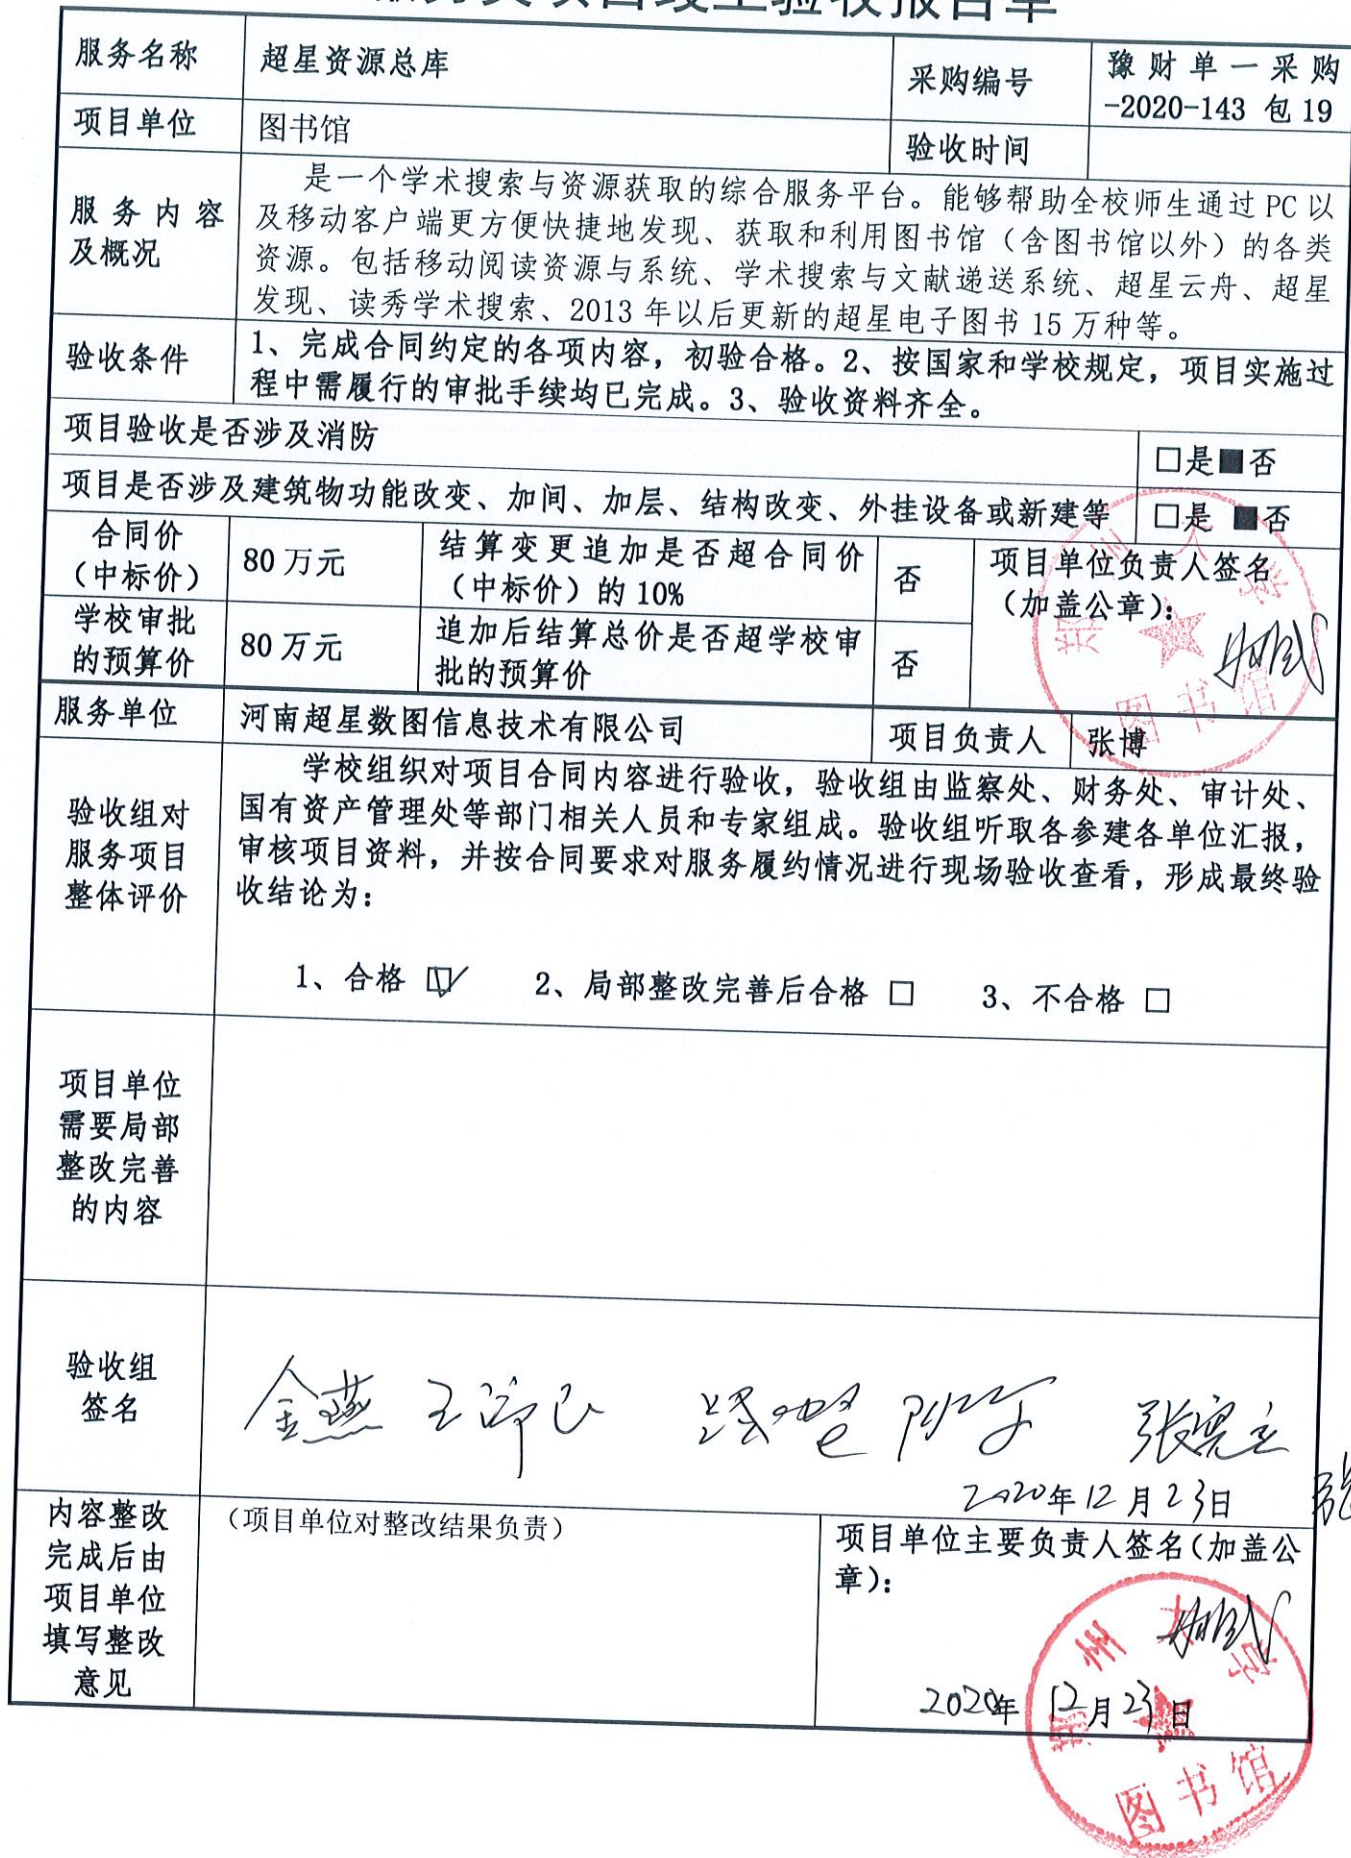 服务类项目竣工验收报告单
服务名称
超星资源总库
采购编号
豫财单一采购
-2020-143 包19
项目单位
图书馆
验收时间
服务内容
及概况
是一个学术搜索与资源获取的综合服务平台。能够帮助全校师生通过PC以
及移动客户端更方便快捷地发现、获取和利用图书馆（含图书馆以外）的各类
资源。包括移动阅读资源与系统、学术搜索与文献递送系统、超星云舟、超星
发现、读秀学术搜索、2013年以后更新的超星电子图书15万种等。
验收条件
1、完成合同约定的各项内容，初验合格。2、按国家和学校规定，项目实施过
程中需履行的审批手续均已完成。3、验收资料齐全。
项目验收是否涉及消防
□是■否
项目是否涉及建筑物功能改变、加间、加层、结构改变、外挂设备或新建等
□是 ■否
合同价
（中标价）
80万元
结算变更追加是否超合同价
（中标价）的10%
否
项目单位负责人签名
（加盖公章）：
学校审批
的预算价
80万元
追加后结算总价是否超学校审
批的预算价
否
郑州大学
图书馆
服务单位
河南超星数图信息技术有限公司
项目负责人
张博
验收组对
服务项目
整体评价
学校组织对项目合同内容进行验收，验收组由监察处、财务处、审计处、
国有资产管理处等部门相关人员和专家组成。验收组听取各参建各单位汇报，
审核项目资料，并按合同要求对服务履约情况进行现场验收查看，形成最终验
收结论为：
1、合格 ☑ 2、局部整改完善后合格 □ 3、不合格 □
项目单位
需要局部
整改完善
的内容
验收组
签名
金燕
2020年12月23日
内容整改
完成后由
项目单位
填写整改
意见
（项目单位对整改结果负责）
项目单位主要负责人签名（加盖公
章）：
2020年12月23日
郑州大学
图书馆